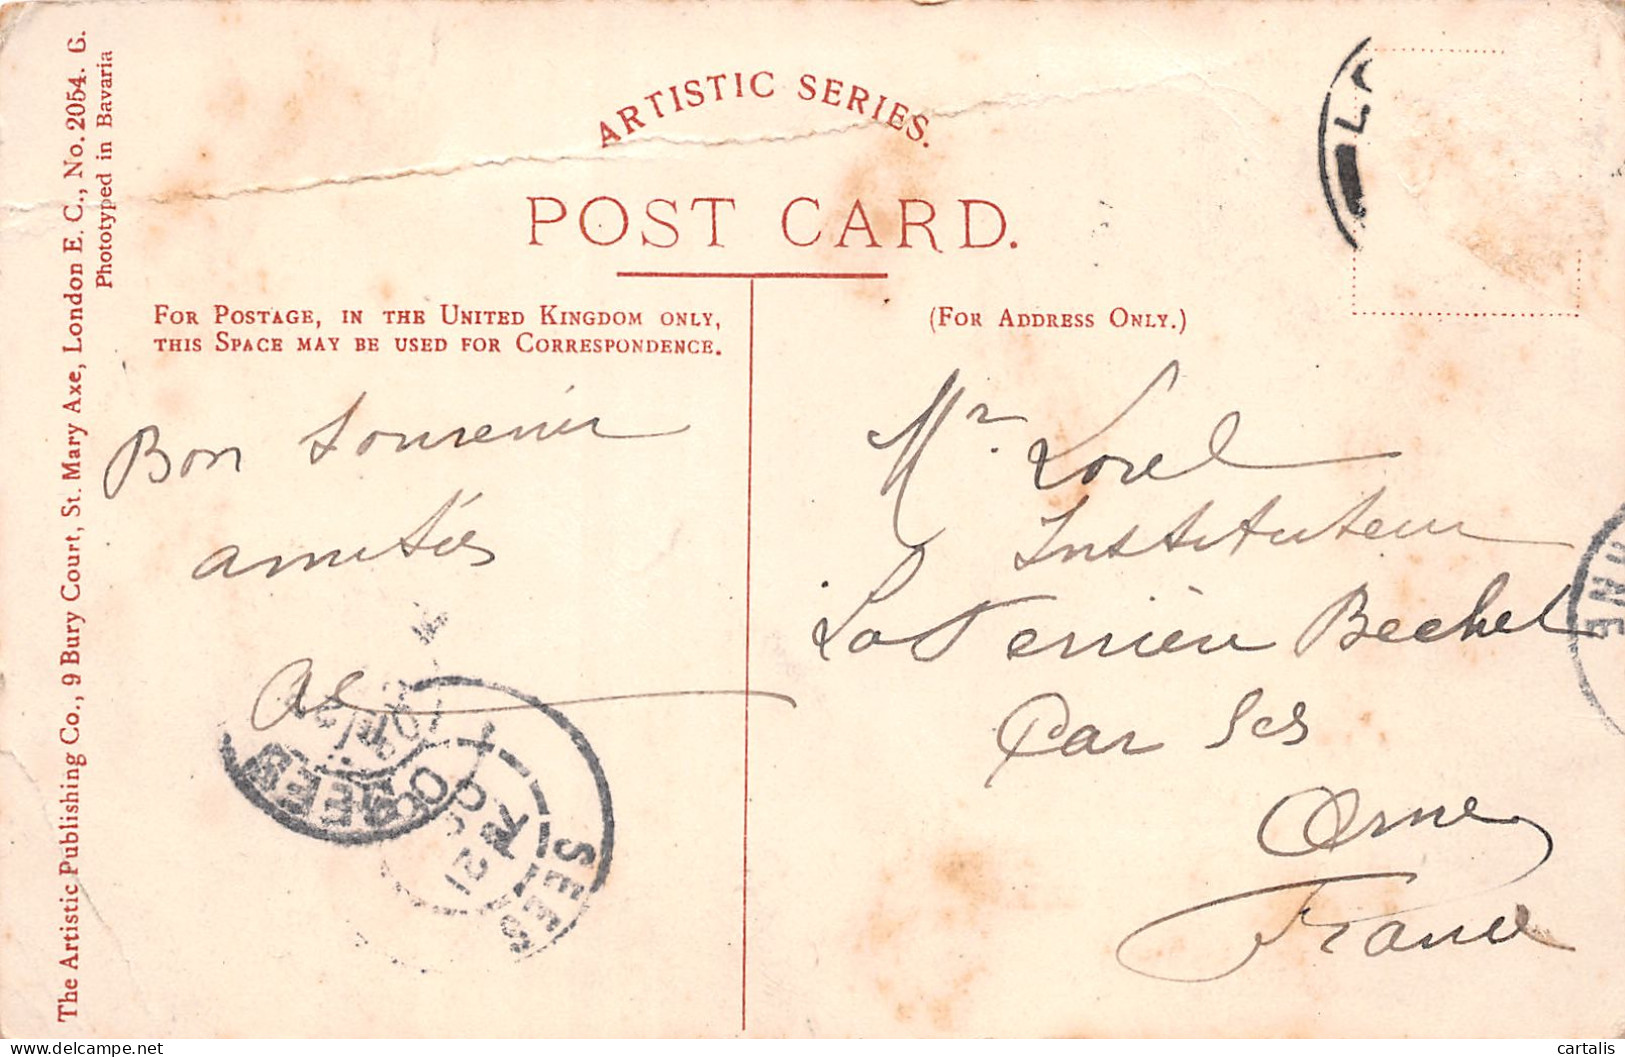 The Artistic Publishing Co., 9 Bury Court, St. Mary Axe, London E. C., No. 2054. G.
Phototyped in Bavaria
ARTISTIC SERIES.
POST CARD.
FOR POSTAGE, IN THE UNITED KINGDOM ONLY,
THIS SPACE MAY BE USED FOR CORRESPONDENCE.
(FOR ADDRESS ONLY.)
Bon souvenir
amitiés
Mr. Lorel
Instituteur
La Ferrière Bechet
Par Sées
Orne
France
SEES
cartalis